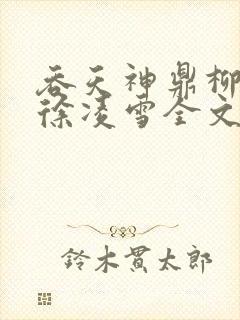 吞天神鼎柳
徐凌雪全文
鈴木貫太郎